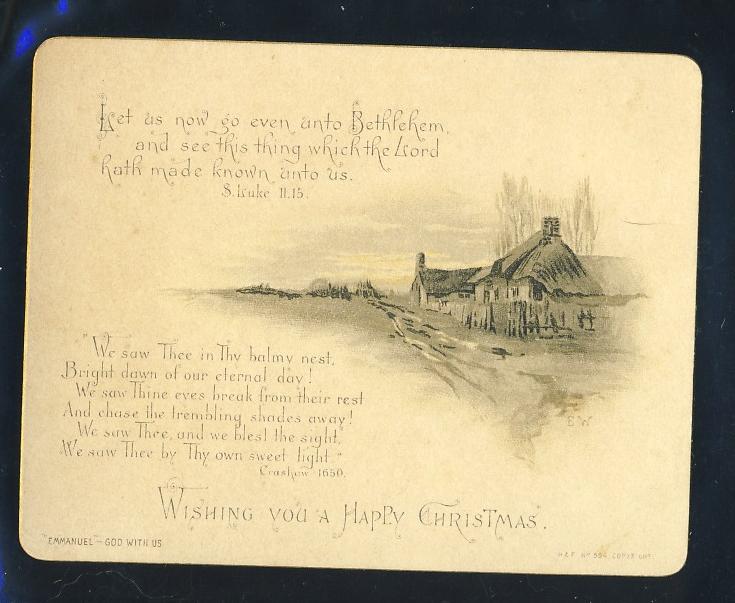 Let us now go even unto Bethlehem,
and see this thing which the Lord
hath made known unto us.
S. Luke 11.15.
"We saw Thee in Thy balmy nest,
Bright dawn of our eternal day!
We saw Thine eyes break from their rest
And chase the trembling shades away!
We saw Thee, and we blest the sight,
We saw Thee by Thy own sweet light."
Crashaw 1650.
E W
Wishing you a Happy Christmas.
"Emmanuel"- God with us
H & F No 594 Copyright